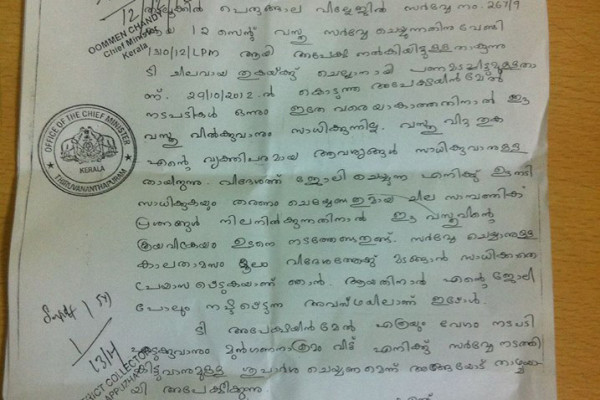 താലൂക്കിൽ പെരുങ്ങാല വില്ലേജിൽ സർവ്വേ നം. 267/9
12 സെന്റ് വസ്തു സർവ്വേ ചെയ്യുന്നതിനു വേണ്ടി
/30/12/LPM ആയി അപേക്ഷ നൽകിയിട്ടുള്ളതാകുന്നു
ടി ചിലവായ തുകയ്ക്ക് ചെല്ലാനായി പണമടച്ചിട്ടുള്ളതാ
ണ്. 29/10/2012.ൽ കൊടുത്ത അപേക്ഷയിൻമേൽ
നടപടികൾ ഒന്നും ഇതേ വരെയാകാത്തതിനാൽ ഈ
വസ്തു വിൽക്കുവാനും സാധിക്കുന്നില്ല. വസ്തു വിറ്റ തുക
എന്റെ വ്യക്തിപരമായ ആവശ്യങ്ങൾ സാധിക്കുവാനുള്ള
തായിരുന്നു. വിദേശത്ത് ജോലി ചെയ്യുന്ന എനിക്ക് ഉടൻ
സാധിക്കുകയും തരണം ചെയ്യേണ്ടതുമായ ചില സാമ്പത്തിക
പ്രശ്നങ്ങൾ നിലനിൽക്കുന്നതിനാൽ ഈ വസ്തുവിന്റെ
ക്രയവിക്രയം ഉടനെ നടത്തേണ്ടതുണ്ട്. സർവ്വേ ചെയ്യാനുള്ള
കാലതാമസം മൂലം വിദേശത്തേക്ക് മടങ്ങാൻ സാധിക്കാതെ
പ്രയാസപ്പെടുകയാണ് ഞാൻ. ആയതിനാൽ എന്റെ ജോലി
പോലും നഷ്ടപ്പെടുന്ന അവസ്ഥയിലാണ് ഇപ്പോൾ.
ടി അപേക്ഷയിൻമേൽ എത്രയും വേഗം നടപടി
എടുക്കുവാനും മുൻഗണനാക്രമം വിട്ട് എനിക്ക് സർവ്വേ നടത്തി
കിട്ടുവാനുമുള്ള ശുപാർശ ചെയ്യണമെന്ന് അങ്ങയോട് താഴ്മയാ
യി അപേക്ഷിക്കുന്നു
എന്ന്
12/
OOMMEN CHANDY
Chief Minister
Kerala
OFFICE OF THE CHIEF MINISTER
KERALA
THIRUVANANTHAPURAM
DISTRICT COLLECTOR